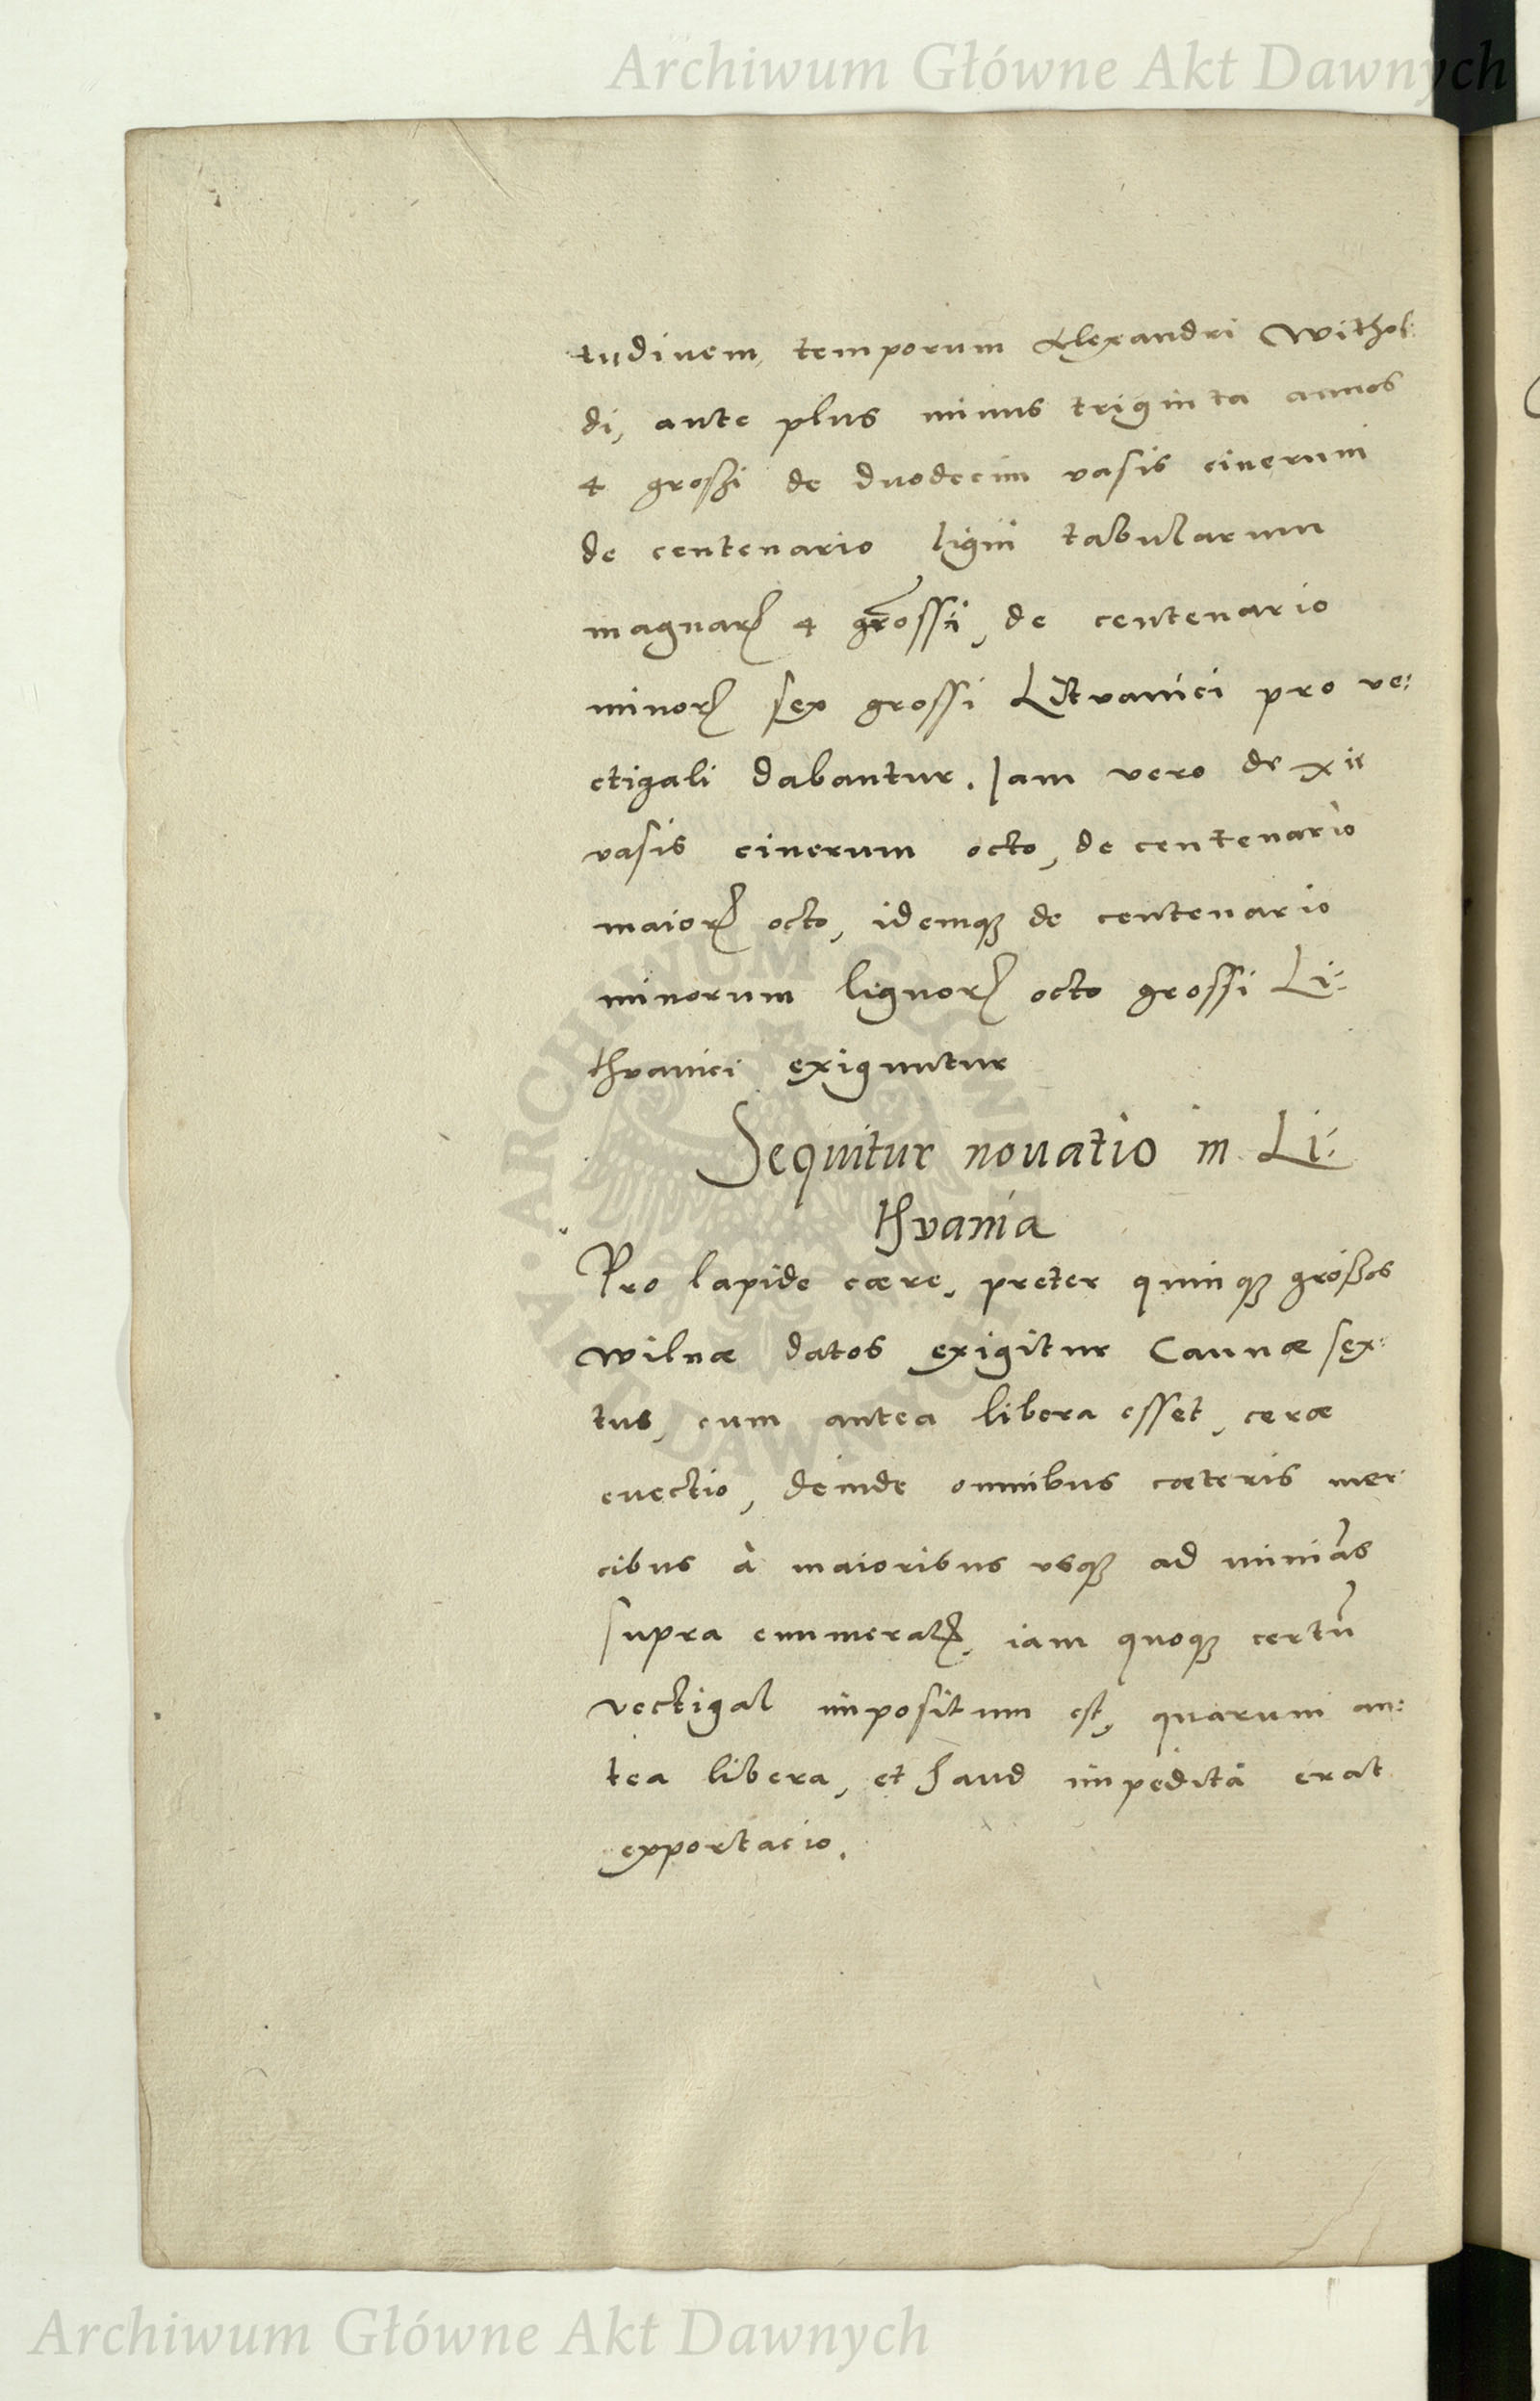 Archiwum Główne Akt Dawnych
tudinem, temporum Alexandri Withol:
di, ante plus minus triginta annos
4 großi de duodecim vasis cinerum
de centenario ligni tabularum
magnarꝝ 4 grossi, de centenario
minorꝝ sex grossi Litvanici pro ve:
ctigali dabantur. Iam vero de xii
vasis cinerum octo, de centenario
maiorꝝ octo, idemqꝫ de centenario
minorum lignorꝝ octo grossi Li:
thvanici exiguntur
Sequitur novatio in Li:
thvania
Pro lapide cære, preter quinqꝫ großos
Wilnæ datos exigitur Caunæ sex:
tus, cum antea libera esset, ceræ
evectio, deinde omnibus cæteris mer:
cibus à maioribus vsqꝫ ad minimas
supra enumeratꝭ, iam quoqꝫ certū
vectigal impositum est, quarum an:
tea libera, et haud impedita erat
exportacio.
ARCHIWUM GŁÓWNE AKT DAWNYCH
Archiwum Główne Akt Dawnych